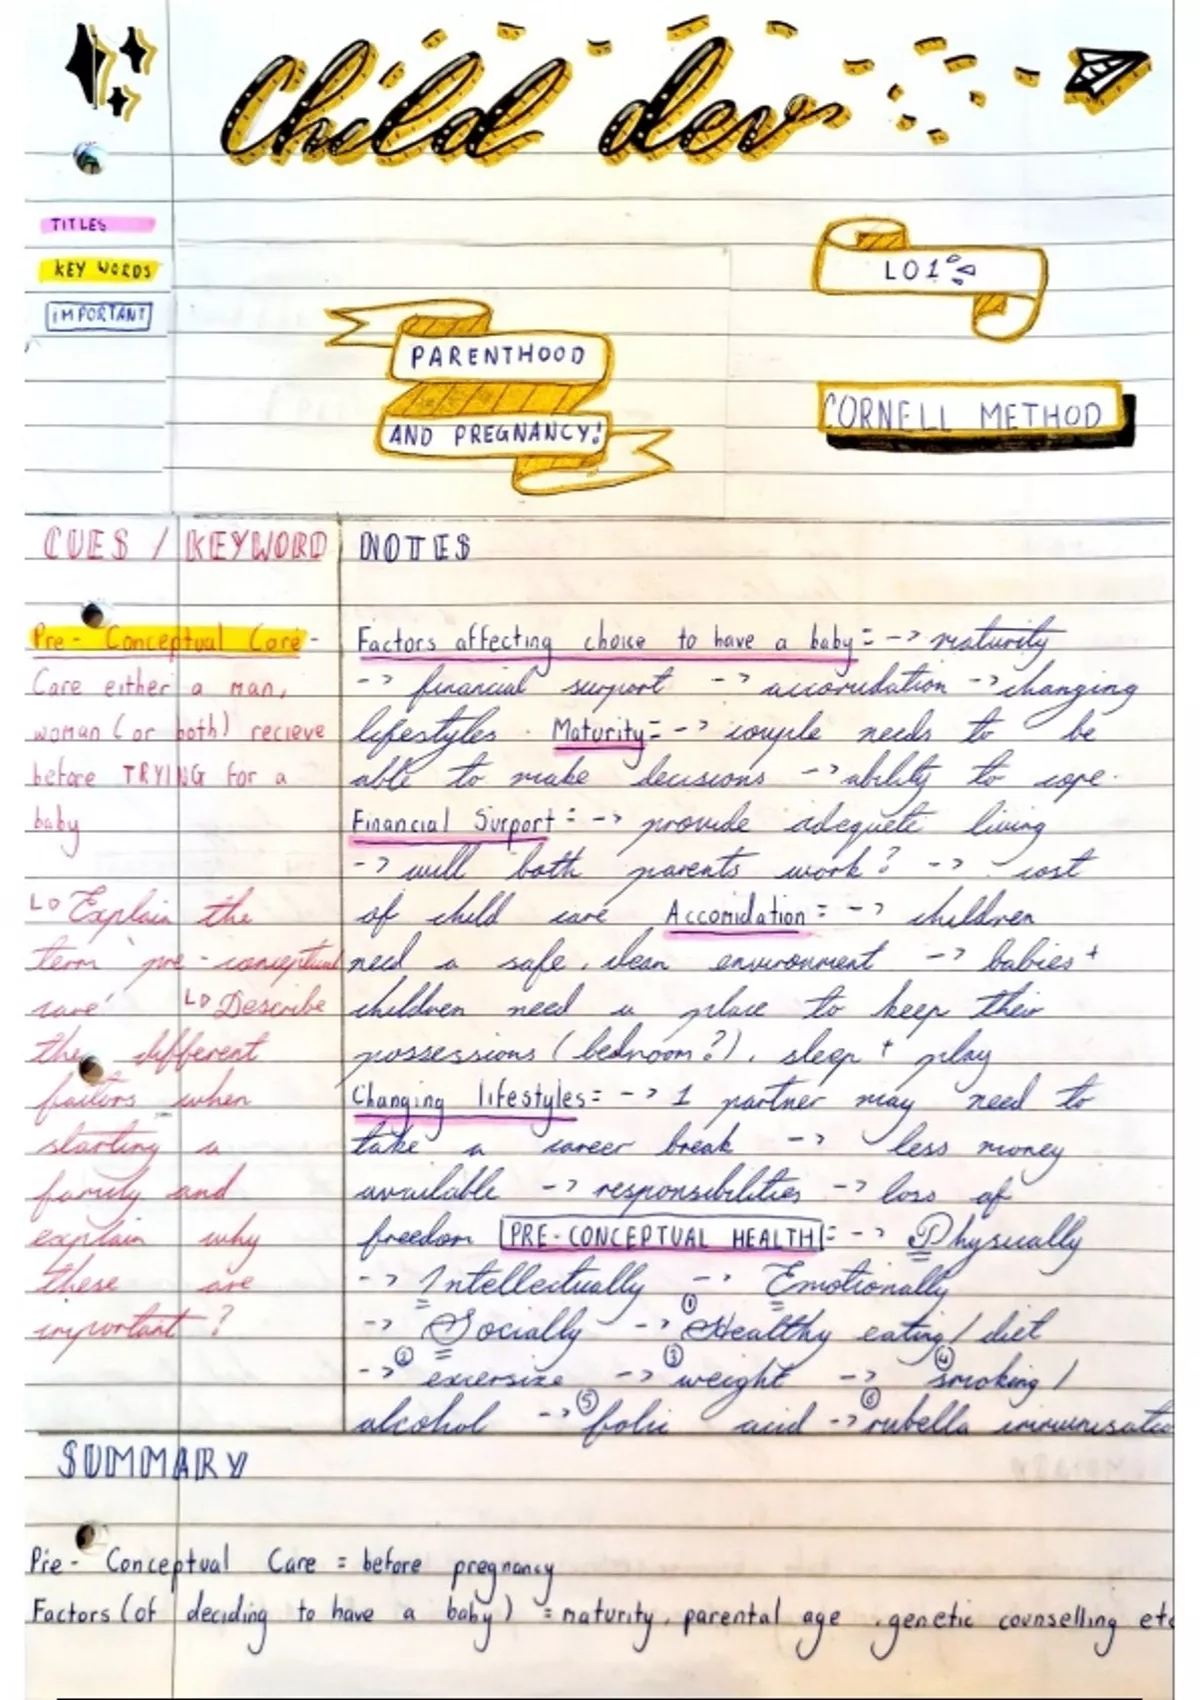 Child dev
TITLES
KEY WORDS
IMPORTANT
LO1
PARENTHOOD
AND PREGNANCY!
CORNELL METHOD
CUES / KEYWORD
Pre - Conceptual Care -
Care either a man,
woman (or both) recieve
before TRYING for a
baby
Explain the
term 'pre-conceptual
care' Describe
the different
factors when
starting a
family and
explain why
these are
important?
NOTES
Factors affecting choice to have a baby = -> maturity
-> financial surport -> accomidation -> changing
lifestyles. Maturity = -> couple needs to be
able to make decisions -> ability to cope.
Financial Surport = -> provide adequete living
-> will both parents work? -> cost
of child care Accomidation = -> children
need a safe, clean environment -> babies +
children need a place to keep their
possessions (bedroom?), sleep + play
Changing lifestyles = -> 1 partner may need to
take a career break -> less money
available -> responsibilities -> loss of
freedom PRE-CONCEPTUAL HEALTH = -> Physically
-> Intellectually -> Emotionally
-> Socially -> ① Healthy eating / diet
-> ② excersize -> ③ weight -> ④ smoking /
alcohol -> ⑤ folic acid -> ⑥ rubella immunisatio
SUMMARY
Pre - Conceptual Care = before pregnancy
Factors (of deciding to have a baby) = maturity, parental age, genetic counselling etc